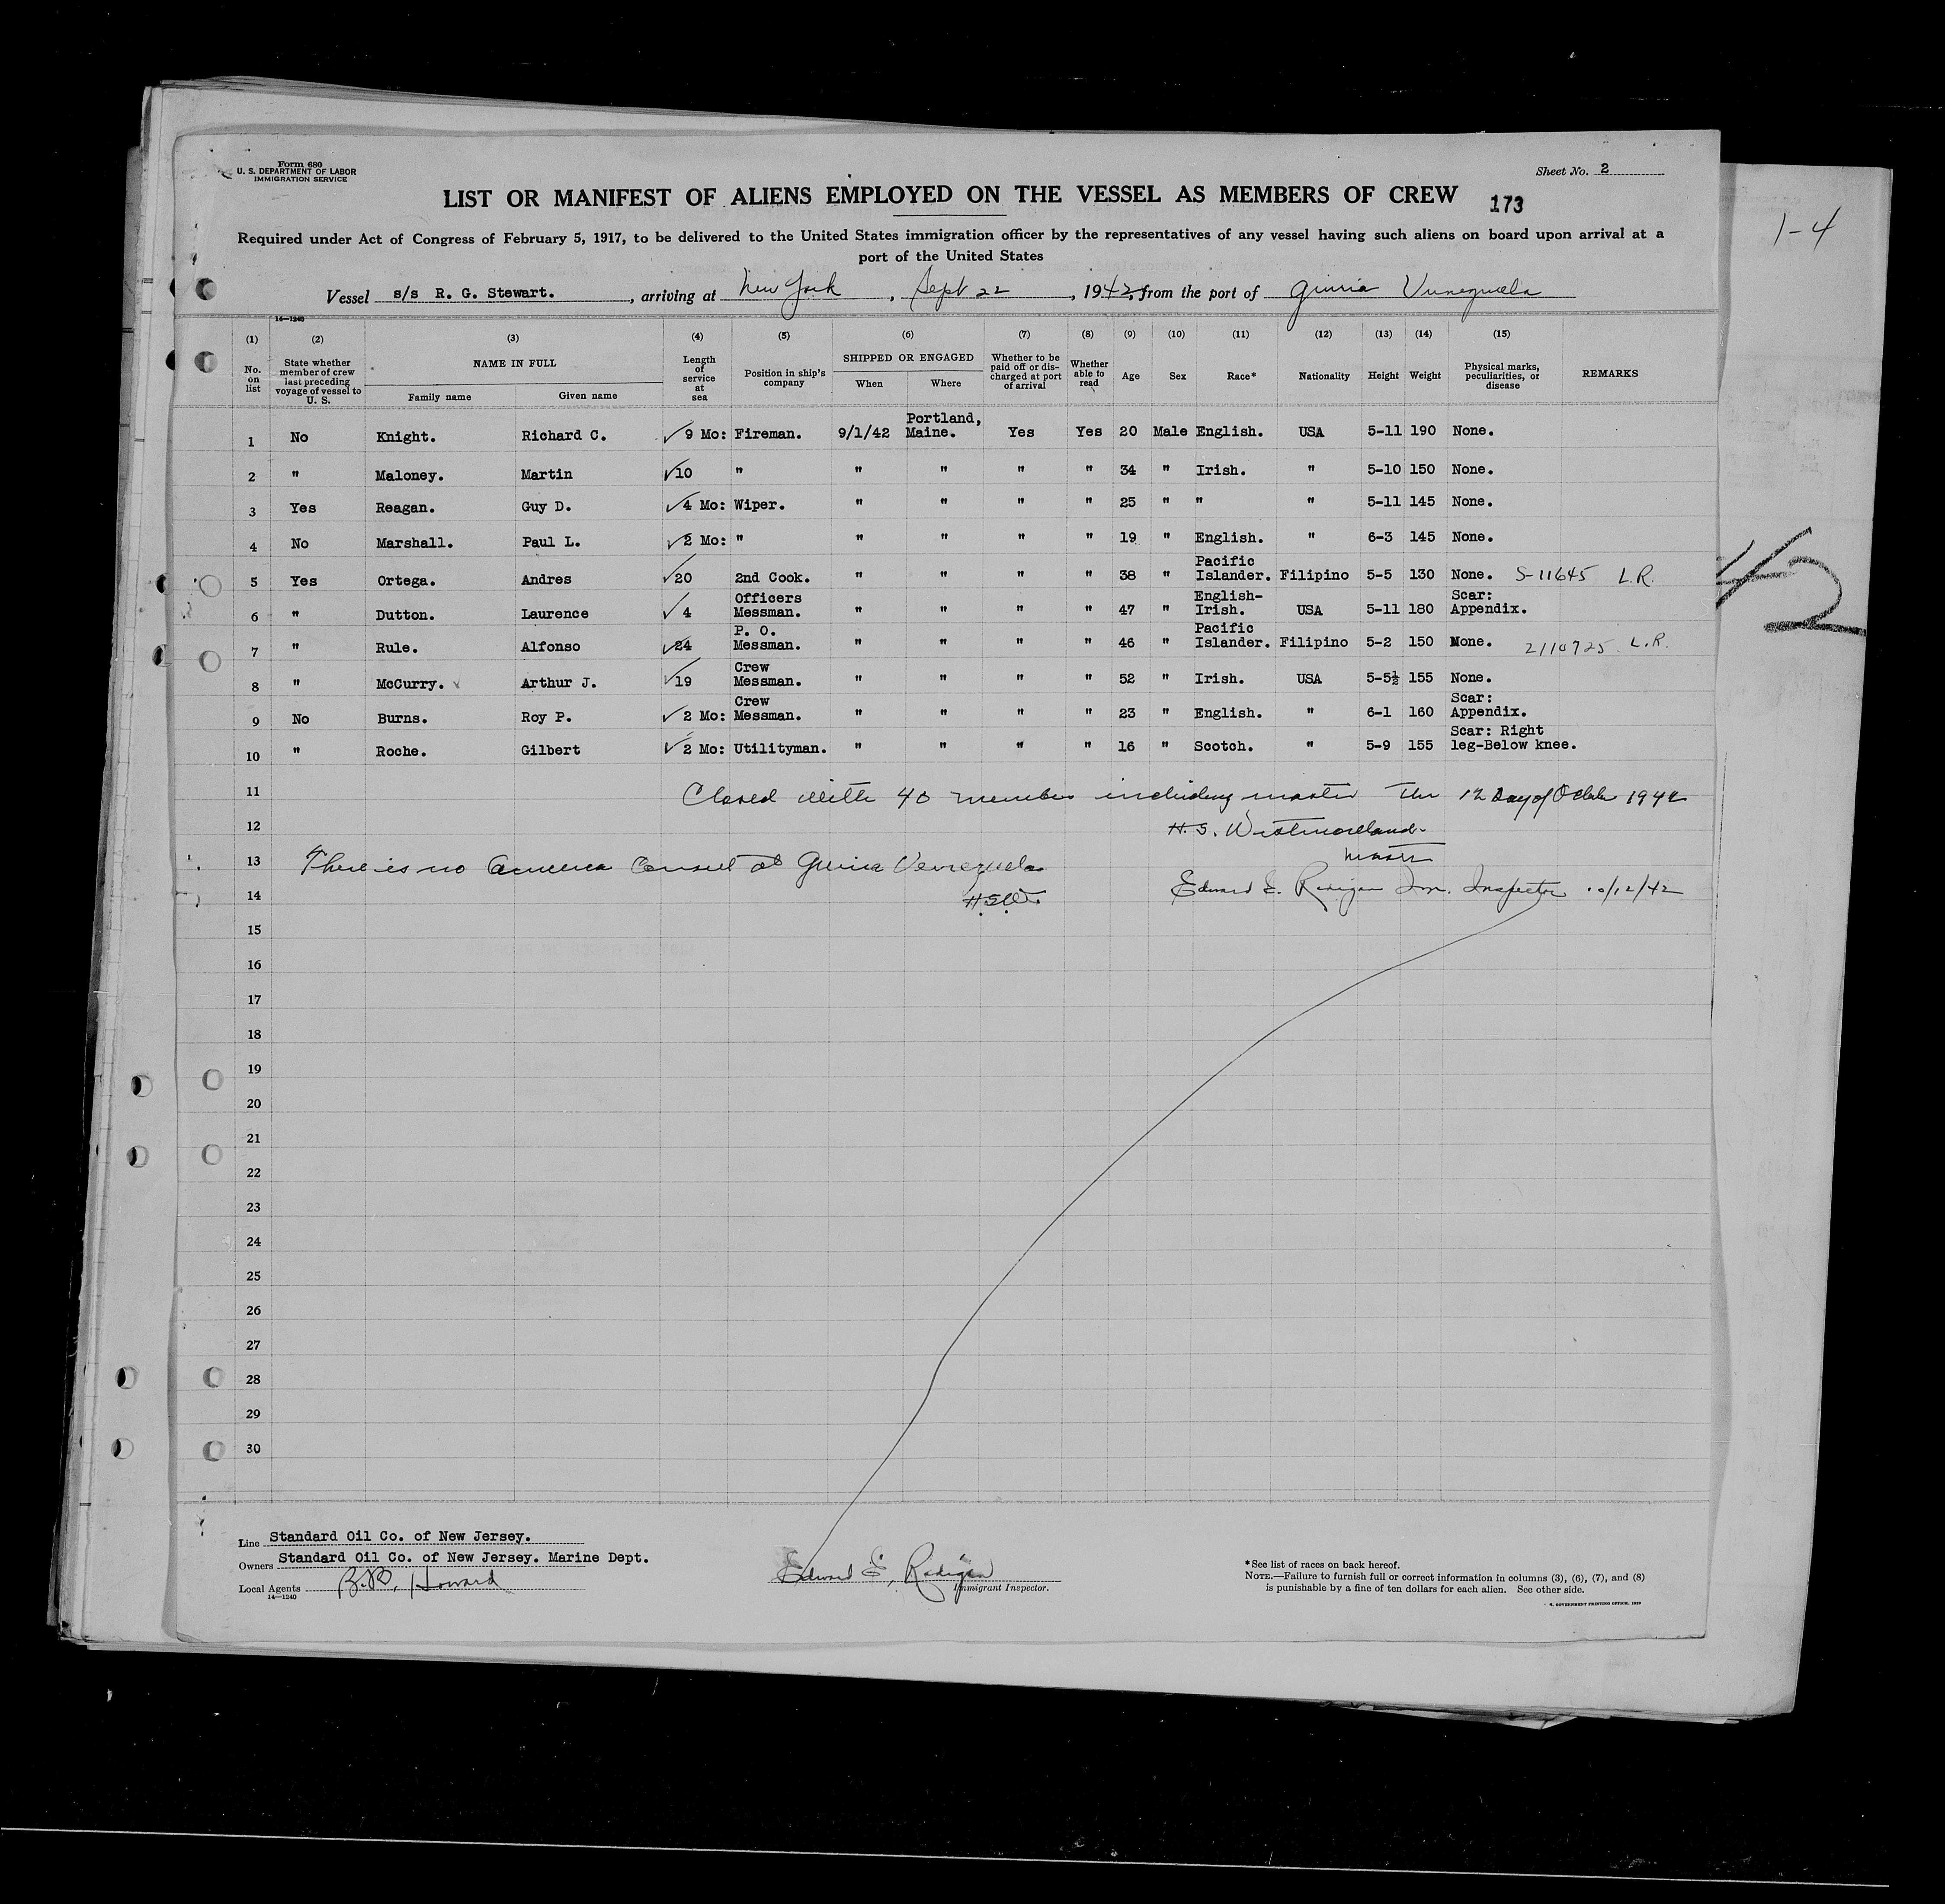 Form 680
U. S. DEPARTMENT OF LABOR
IMMIGRATION SERVICE
Sheet No. 2
LIST OR MANIFEST OF ALIENS EMPLOYED ON THE VESSEL AS MEMBERS OF CREW 173
1-4
Required under Act of Congress of February 5, 1917, to be delivered to the United States immigration officer by the representatives of any vessel having such aliens on board upon arrival at a
port of the United States
Vessel s/s R. G. Stewart. , arriving at New York , Sept 22 , 1942, from the port of Guiria Venezuela
14—1240
(1) (2) (3) (4) (5) (6) (7) (8) (9) (10) (11) (12) (13) (14) (15)
No. on list
State whether member of crew last preceding voyage of vessel to U. S.
NAME IN FULL
Family name Given name
Length of service at sea
Position in ship's company
SHIPPED OR ENGAGED
When Where
Whether to be paid off or discharged at port of arrival
Whether able to read
Age Sex Race* Nationality Height Weight
Physical marks, peculiarities, or disease
REMARKS
1 No Knight. Richard C. ✓ 9 Mo: Fireman. 9/1/42 Portland, Maine. Yes Yes 20 Male English. USA 5-11 190 None.
2 " Maloney. Martin ✓10 " " " " " 34 " Irish. " 5-10 150 None.
3 Yes Reagan. Guy D. ✓4 Mo: Wiper. " " " " 25 " " " 5-11 145 None.
4 No Marshall. Paul L. ✓2 Mo: " " " " " 19 " English. " 6-3 145 None.
5 Yes Ortega. Andres ✓20 2nd Cook. " " " " 38 " Pacific Islander. Filipino 5-5 130 None. S-11645 L.R.
6 " Dutton. Laurence ✓ 4 Officers Messman. " " " " 47 " English-Irish. USA 5-11 180 Scar: Appendix.
7 " Rule. Alfonso ✓24 P. O. Messman. " " " " 46 " Pacific Islander. Filipino 5-2 150 None. 2110725 L.R.
8 " McCurry. ✓ Arthur J. ✓19 Crew Messman. " " " " 52 " Irish. USA 5-5½ 155 None.
9 No Burns. Roy P. ✓ 2 Mo: Crew Messman. " " " " 23 " English. " 6-1 160 Scar: Appendix.
10 " Roche. Gilbert ✓ 2 Mo: Utilityman. " " " " 16 " Scotch. " 5-9 155 Scar: Right leg-Below knee.
11 Closed with 40 members including master 12 Day of October 1942
12 H. S. Westmoreland
Master
13 There is no America Consul at Guiria Venezuela
14 H.S.W. Edward E. Radigan Im. Inspector 10/12/42
15
16
17
18
19
20
21
22
23
24
25
26
27
28
29
30
Line Standard Oil Co. of New Jersey.
Owners Standard Oil Co. of New Jersey. Marine Dept.
Local Agents Howard
14—1240
Edward E. Radigan
Immigrant Inspector.
*See list of races on back hereof.
NOTE.—Failure to furnish full or correct information in columns (3), (6), (7), and (8)
is punishable by a fine of ten dollars for each alien. See other side.
GOVERNMENT PRINTING OFFICE